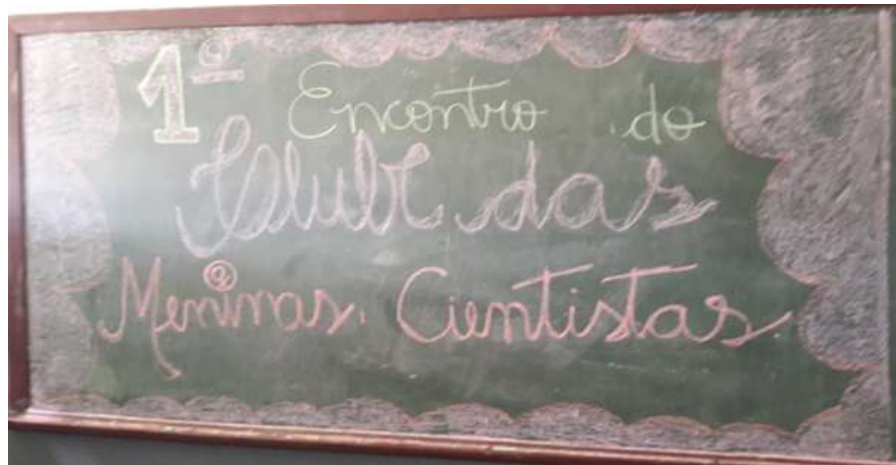 1º Encontro do
Clube das
Meninas Cientistas